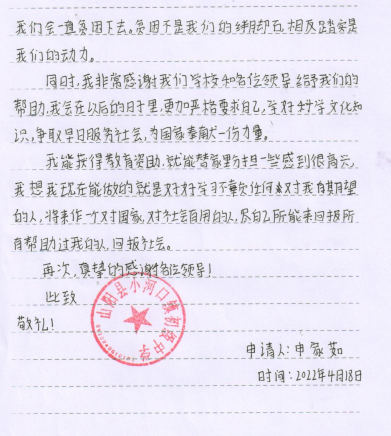 我们会一直贫困下去。贫困不是我们的绊脚石,相反踏实是
我们的动力。
同时,我非常感谢我们学校和各位领导给予我们的
帮助,我会在以后的日子里,更加严格要求自己,学好科学文化知
识,争取早日服务社会,为国家奉献一份力量。
我能获得教育资助,就能替家里分担一些感到很高兴,
我想我现在能做的就是好好学习不辜负任何对我有期望
的人,将来作一个对国家,对社会有用的人,尽自己所能来回报所
有帮助过我的人,回报社会。
再次,真挚的感谢各位领导!
此致
敬礼!
山阳县小河口镇初级中学
申请人:申家茹
时间:2022年4月18日